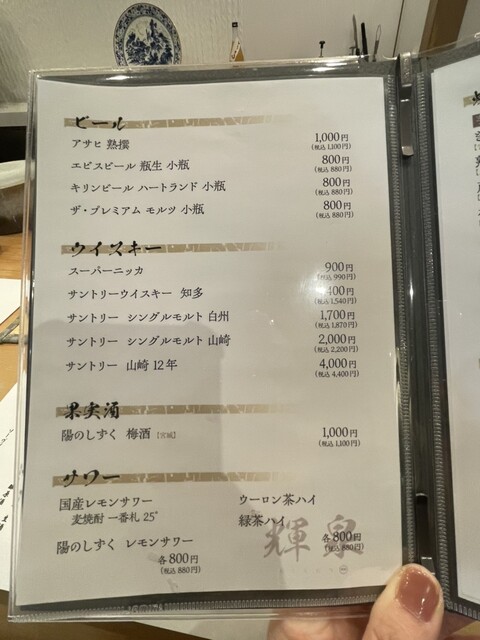 ビール
アサヒ 熟撰 1,000円
(税込 1,100円)
エビスビール 瓶生 小瓶 800円
(税込 880円)
キリンビール ハートランド 小瓶 800円
(税込 880円)
ザ・プレミアム モルツ 小瓶 800円
(税込 880円)
ウイスキー
スーパーニッカ 900円
(税込 990円)
サントリーウイスキー 知多 1,400円
(税込 1,540円)
サントリー シングルモルト 白州 1,700円
(税込 1,870円)
サントリー シングルモルト 山崎 2,000円
(税込 2,200円)
サントリー 山崎 12年 4,000円
(税込 4,400円)
果実酒
陽のしずく 梅酒 [宮城] 1,000円
(税込 1,100円)
サワー
国産レモンサワー
麦焼酎 一番札 25°
陽のしずく レモンサワー
各800円
(税込 880円)
ウーロン茶ハイ
緑茶ハイ
各800円
(税込 880円)
輝 泉